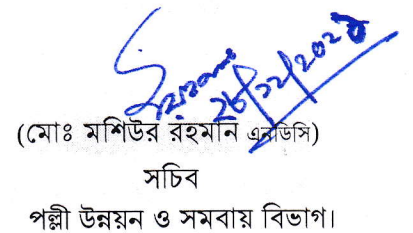 (মোঃ মশিউর রহমান এনডিসি)
সচিব
পল্লী উন্নয়ন ও সমবায় বিভাগ।